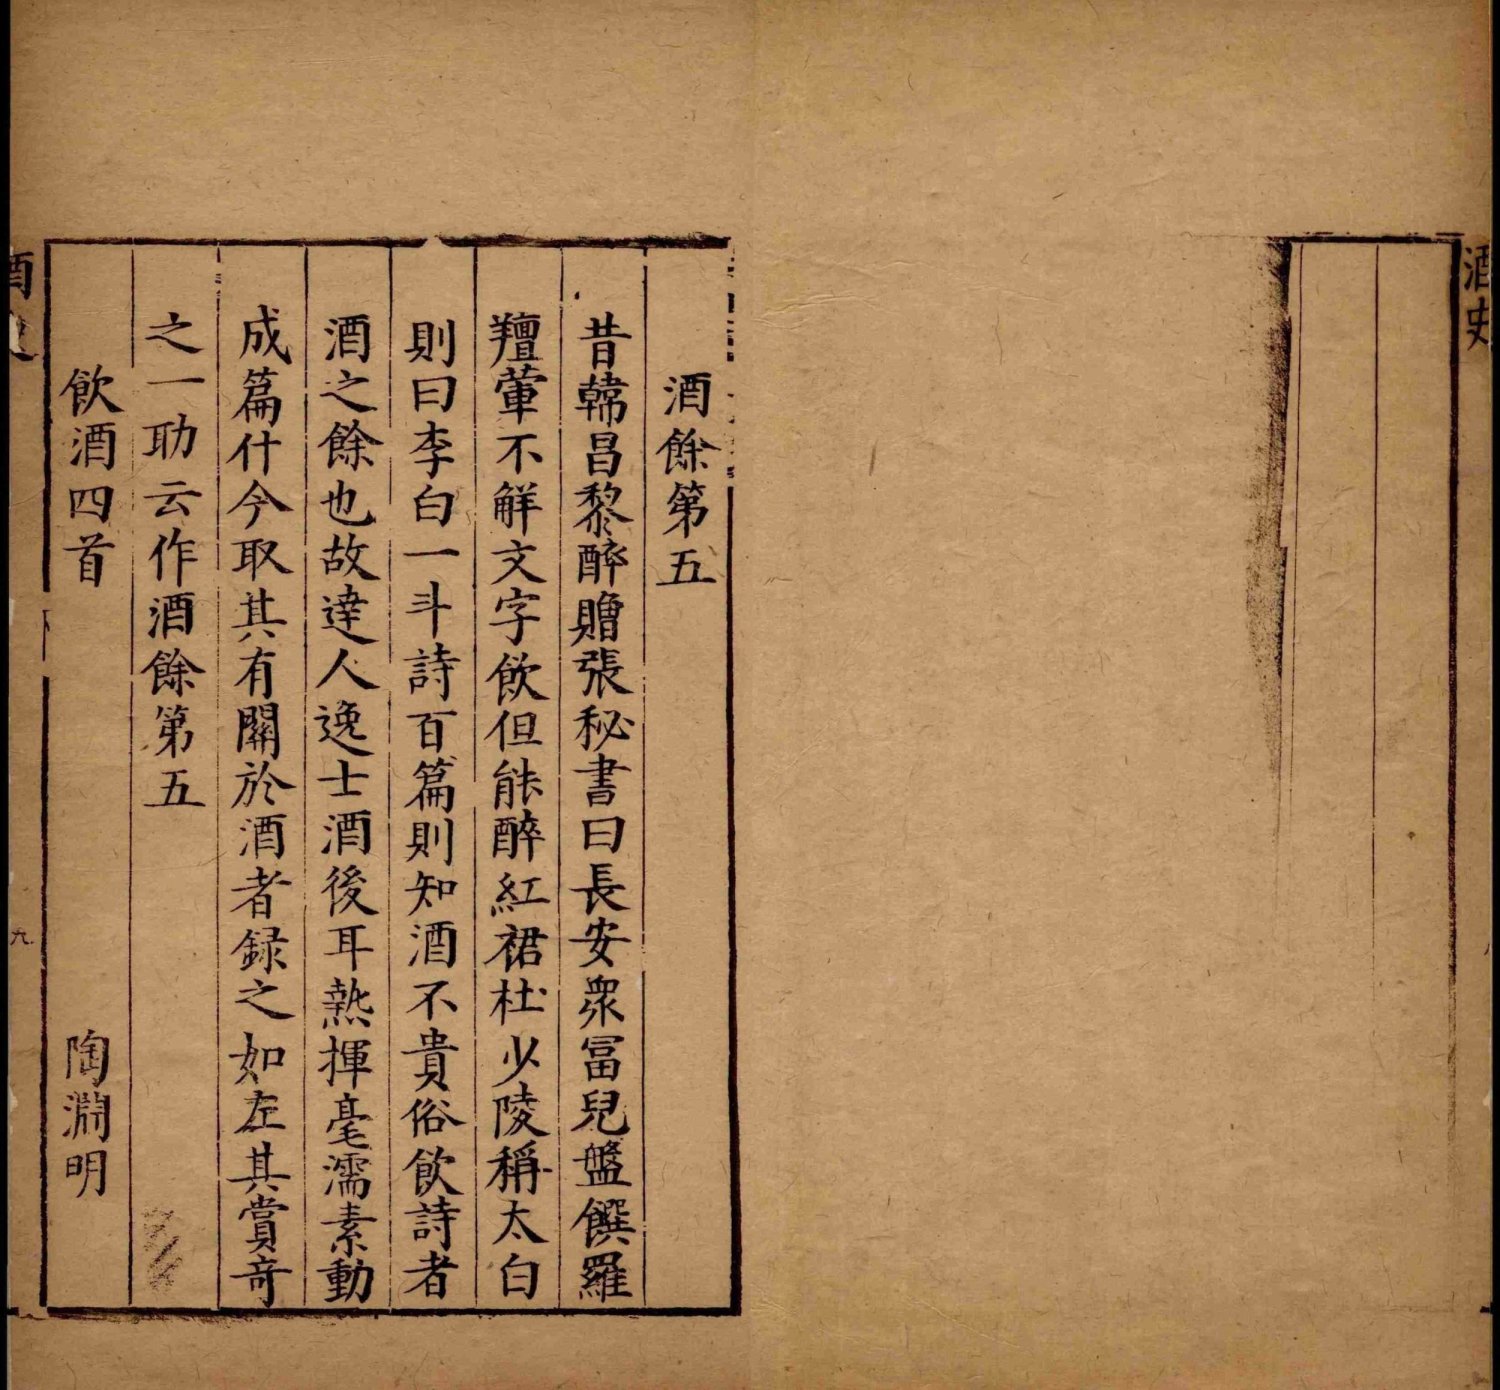 酒史
酒餘第五
昔韓昌黎醉贈張秘書曰長安衆冨兒盤饌羅
羶葷不觧文字飲但能醉紅裙杜少陵稱太白
則曰李白一斗詩百篇則知酒不貴俗飲詩者
酒之餘也故逹人逸士酒後耳熱揮毫濡素動
成篇什今取其有關於酒者録之如左其賞竒
之一助云作酒餘第五
飲酒四首 陶淵明
酒史
九